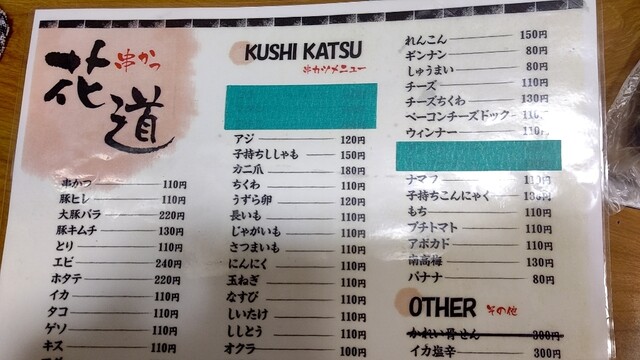 花道
串かつ
串かつ 110円
豚ヒレ 110円
大豚バラ 220円
豚キムチ 130円
とり 110円
エビ 240円
ホタテ 220円
イカ 110円
タコ 110円
ゲソ 110円
キス 110円
KUSHI KATSU
串カツメニュー
アジ 120円
子持ちししゃも 150円
カニ爪 180円
ちくわ 110円
うずら卵 120円
長いも 110円
じゃがいも 110円
さつまいも 110円
にんにく 110円
玉ねぎ 110円
なすび 110円
しいたけ 110円
ししとう 110円
オクラ 100円
れんこん 150円
ギンナン 80円
しゅうまい 80円
チーズ 110円
チーズちくわ 130円
ベーコンチーズドック 110円
ウィンナー 110円
ナマフ 110円
子持ちこんにゃく 円
もち 110円
プチトマト 110円
アボカド 110円
南高梅 130円
バナナ 80円
OTHER その他
かれい骨せん 300円
イカ塩辛 300円